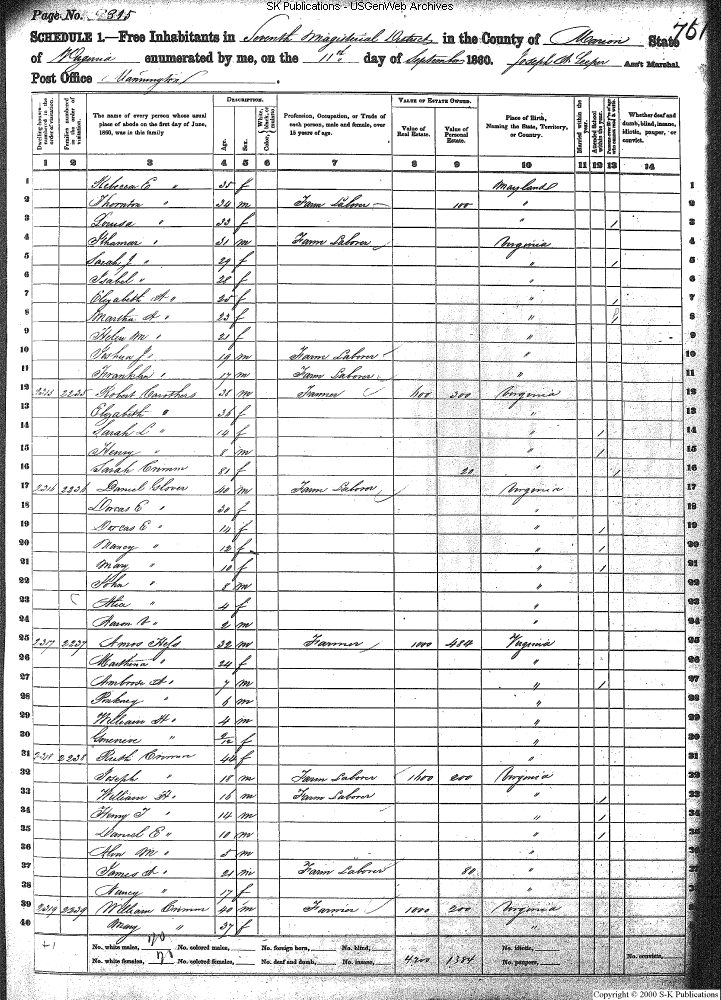 SK Publications - USGenWeb Archives
Page No. 315
751
SCHEDULE 1.—Free Inhabitants in Seventh Magisterial District in the County of Marion State
of Virginia enumerated by me, on the 11th day of September 1860. Joseph Ass't Marshal.
Post Office Mannington
Dwelling-houses—numbered in the order of visitation.
Families numbered in the order of visitation.
The name of every person whose usual place of abode on the first day of June, 1860, was in this family
DESCRIPTION.
Age.
Sex.
Color, White, black, or mulatto.
Profession, Occupation, or Trade of each person, male and female, over 15 years of age.
VALUE OF ESTATE OWNED.
Value of Real Estate.
Value of Personal Estate.
Place of Birth, Naming the State, Territory, or Country.
Married within the year.
Attended School within the year.
Whether deaf and dumb, blind, insane, idiotic, pauper, or convict.
1 2 3 4 5 6 7 8 9 10 11 12 13 14
1 Rebecca E " 35 f Maryland 1
2 Thornton " 34 m Farm Laborer 100 " 2
3 Louisa " 33 f " / 3
4 Ithamar " 31 m Farm Laborer Virginia 4
5 Sarah J " 29 f " / 5
6 Isabel " 28 f " 6
7 Elizabeth A " 25 f " / 7
8 Martha A " 23 f " / 8
9 Helen M " 21 f " 9
10 Joshua J " 19 m Farm Laborer " 10
11 Franklin " 17 m Farm Laborer " 11
12 2315 2235 Robert Carothers 38 m Farmer 1100 300 Virginia 12
13 Elizabeth " 36 f " 13
14 Sarah L " 14 f " / 14
15 Henry " 8 m " / 15
16 Sarah Crimm 81 f 20 " / 16
17 2316 2236 Daniel Glover 40 m Farm Laborer Virginia 17
18 Dorcas E " 30 f " 18
19 Dorcas E " 14 f " / 19
20 Nancy " 12 f " / 20
21 Mary " 10 f " / 21
22 John " 8 m " 22
23 Alice " 4 f " 23
24 Aaron V " 2 m " 24
25 2317 2237 Amos Hess 32 m Farmer 1000 484 Virginia 25
26 Marthena " 24 f " 26
27 Ambrose A " 7 m " / 27
28 Pinkney " 6 m " 28
29 William H " 4 m " 29
30 Genevive " 2/12 f " 30
31 2318 2238 Ruth Crimm 44 f 31
32 Joseph " 18 m Farm Laborer 1100 200 Virginia 32
33 William H " 16 m Farm Laborer " / 33
34 Henry T " 14 m " / 34
35 Daniel E " 10 m " / 35
36 Alva M " 5 m " 36
37 James A " 21 m Farm Laborer 80 " 37
38 Nancy " 17 f " 38
39 2319 2239 William Crimm 40 m Farmer 1000 200 Virginia 39
40 Mary " 37 f " 40
No. white males, No. colored males, No. foreign born, No. blind, No. idiotic,
No. white females, No. colored females, No. deaf and dumb, No. insane, 4200 1384 No. paupers, No. convicts,
Copyright © 2000 S-K Publications